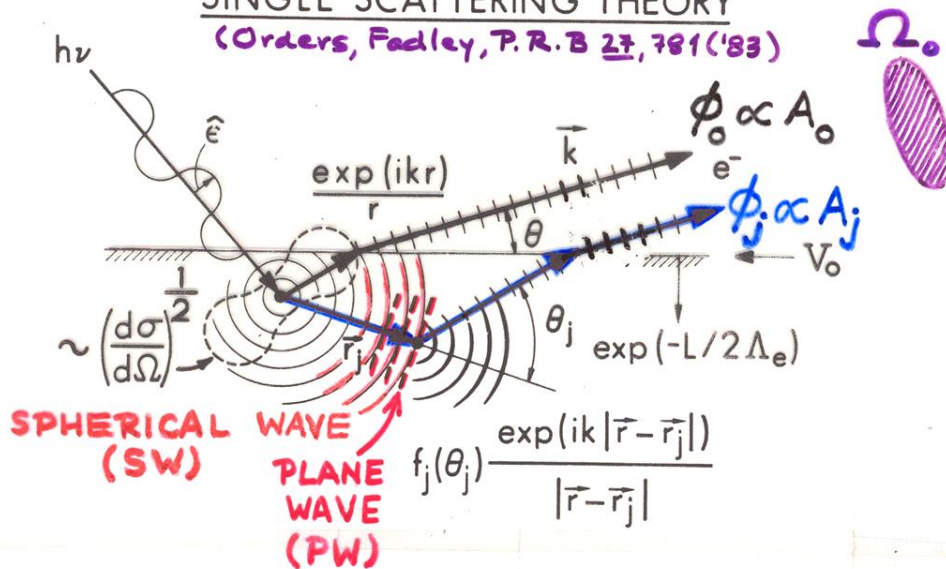 SINGLE SCATTERING THEORY
(Orders, Fadley, P.R.B 27, 781('83)
Ω₀
hν
ε̂
exp(ikr)
r
k⃗
ϕ₀ ∝ A₀
e⁻
ϕⱼ ∝ Aⱼ
θ
V₀
~ (dσ/dΩ)^½
r⃗ⱼ
θⱼ
exp(-L/2Λₑ)
SPHERICAL WAVE
(SW)
PLANE
WAVE
(PW)
fⱼ(θⱼ) exp(ik|r⃗-r⃗ⱼ|)
|r⃗-r⃗ⱼ|